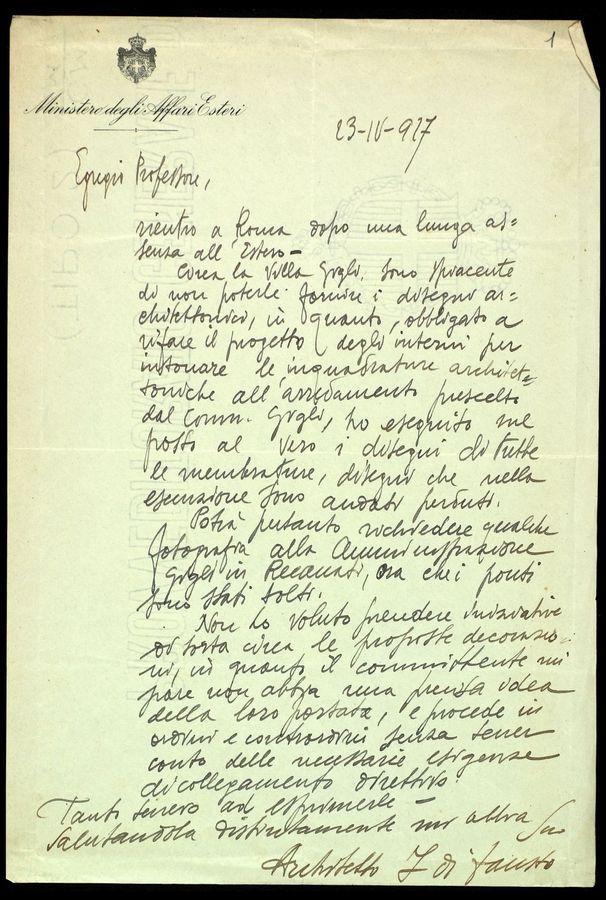 1
Ministero degli Affari Esteri
23-IV-927
Egregio Professore,
rientro a Roma dopo una lunga as=
senza all'Estero-
Circa la Villa Gigli, sono spiacente
di non poterle fornire i disegni ar=
chitettonici, in quanto, obbligato a
rifare il progetto degli interni per
intonare le inquadrature architet=
toniche all'arredamento prescelto
dal Comm. Gigli, ho eseguito sul
posto al vero i disegni di tutte
le membrature, disegni che nella
esecuzione sono andati perduti.
Potrà pertanto richiedere qualche
fotografia alla Amministrazione
Gigli in Recanati, ora che i ponti
sono stati tolti.
Non ho voluto prendere iniziative
di sorta circa le proposte decorazio=
ni, in quanto il committente mi
pare non abbia una precisa idea
della loro portata, e procede in
ordini e contrordini senza tener
conto delle necessarie esigenze
di collegamento direttivo.
Tanto tenevo ad esprimerle -
Salutandola distintamente mi abbia Suo
Architetto F di Fausto